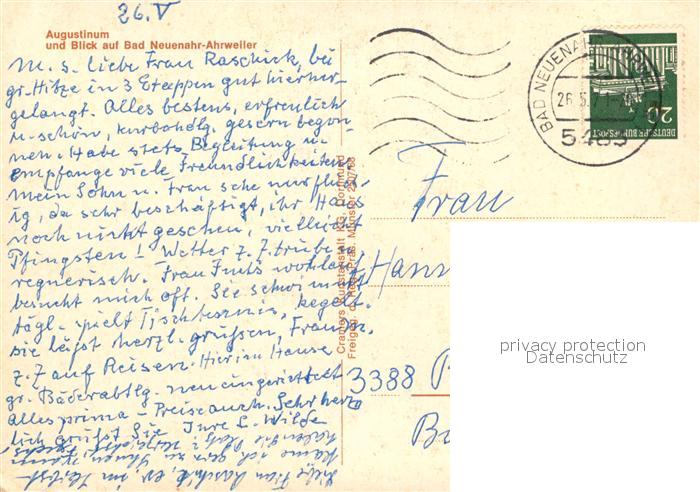 26.V
Augustinum
und Blick auf Bad Neuenahr-Ahrweiler
M. s. liebe Frau Raschick, bei
gr. Hitze in 3 Etappen gut hierher-
gelangt. Alles bestens, erfreulich
u. schön, kurbahdlg. gestern begon-
nen. Habe stets Begleitung u.
empfange viele Freundlichkeiten.
Mein Sohn u. Frau sehe nur flüch-
tig, da sehr beschäftigt, ihr Haus
noch nicht gesehen, vielleicht
Pfingsten! Wetter z. Z. trübe u.
regnerisch. Frau wohlauf
besucht mich oft. Sie schwimmt
tägl. spielt Tischtennis, kegelt.
sie läßt herzl. grüßen,
z. Z auf Reisen. Hier im Hause
gr. Bäderabtlg. neu eingerichtet
alles prima - Preise auch. Sehr herz-
lich grüßt Sie Ihre L. Wilde
Liebe Frau Raschick, im Herbst
komme ich gern zu Ihnen,
haben Sie Platz?
Cramers Kunstanstalt KG, Dortmund
Freigeg. d. Reg. Präs. Münster
BAD NEUENAHR-AHRWEILER
26.5.71
5483
DEUTSCHE BUNDESPOST
20
Frau
Hann
3388
privacy protection
Datenschutz